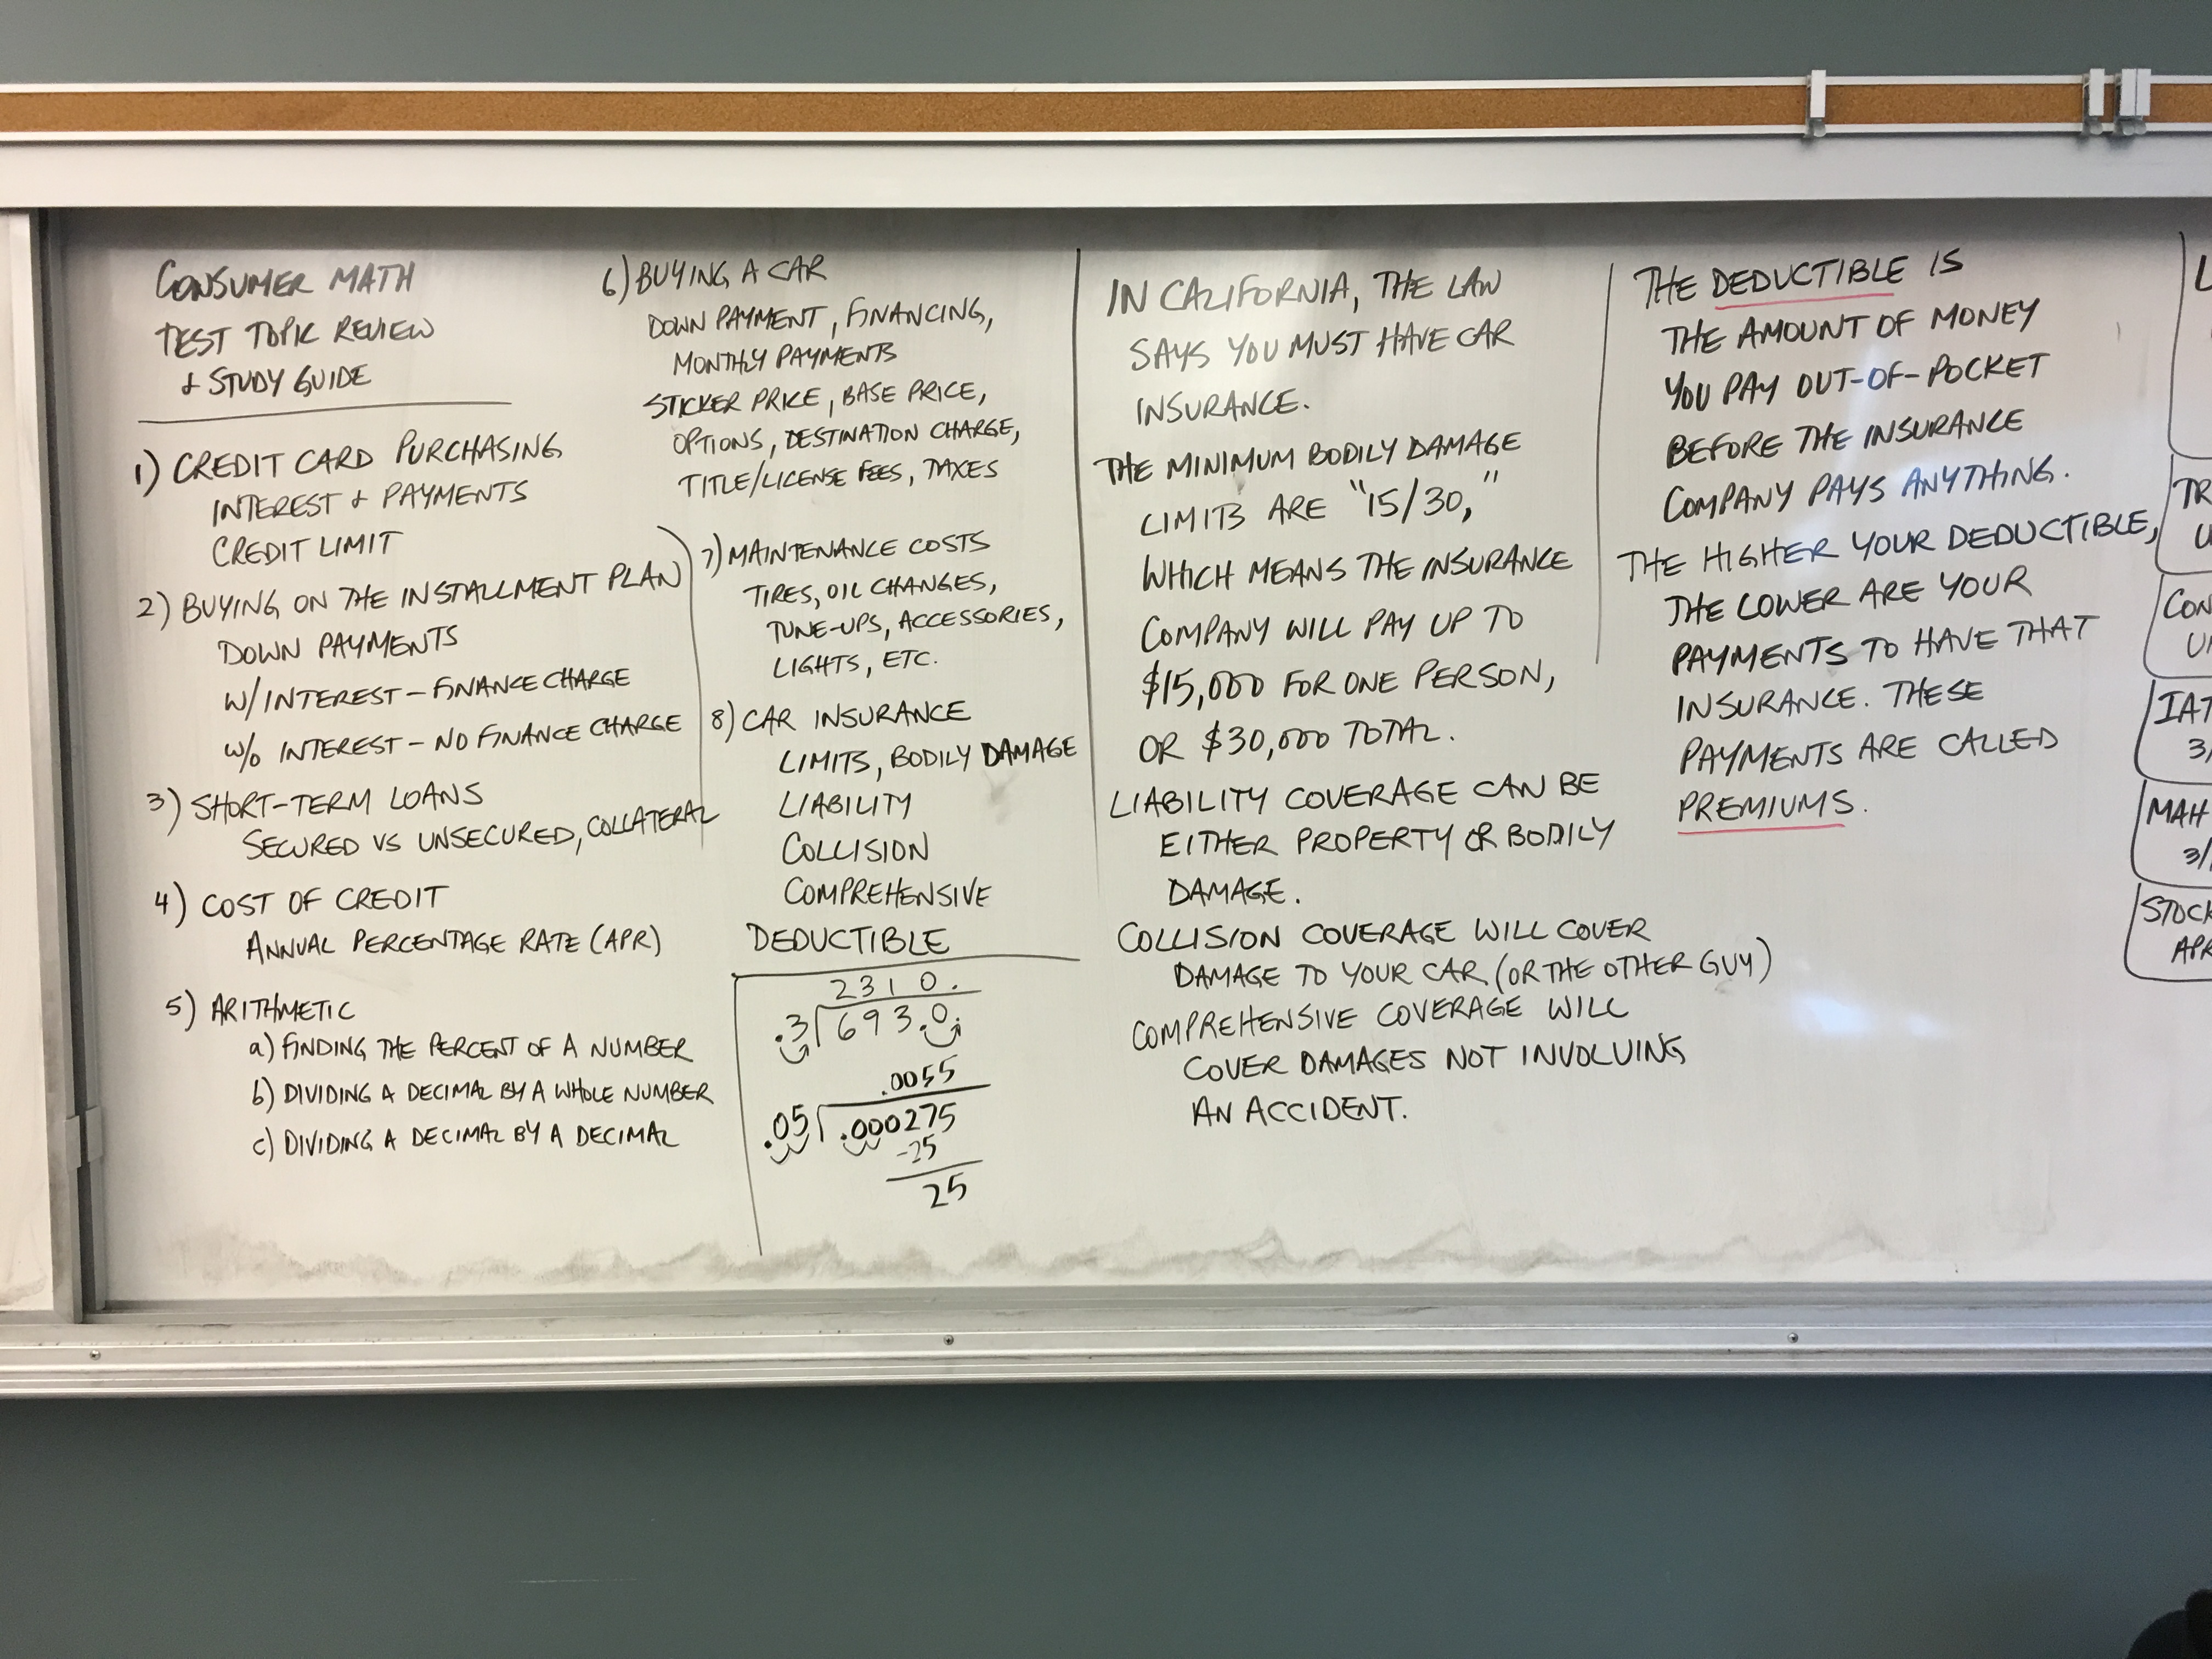 CONSUMER MATH
TEST TOPIC REVIEW
& STUDY GUIDE
1) CREDIT CARD PURCHASING
INTEREST & PAYMENTS
CREDIT LIMIT
2) BUYING ON THE INSTALLMENT PLAN
DOWN PAYMENTS
W/ INTEREST - FINANCE CHARGE
W/O INTEREST - NO FINANCE CHARGE
3) SHORT-TERM LOANS
SECURED VS UNSECURED, COLLATERAL
4) COST OF CREDIT
ANNUAL PERCENTAGE RATE (APR)
5) ARITHMETIC
a) FINDING THE PERCENT OF A NUMBER
b) DIVIDING A DECIMAL BY A WHOLE NUMBER
c) DIVIDING A DECIMAL BY A DECIMAL
6) BUYING A CAR
DOWN PAYMENT, FINANCING,
MONTHLY PAYMENTS
STICKER PRICE, BASE PRICE,
OPTIONS, DESTINATION CHARGE,
TITLE/LICENSE FEES, TAXES
7) MAINTENANCE COSTS
TIRES, OIL CHANGES,
TUNE-UPS, ACCESSORIES,
LIGHTS, ETC.
8) CAR INSURANCE
LIMITS, BODILY DAMAGE
LIABILITY
COLLISION
COMPREHENSIVE
DEDUCTIBLE
2310.
.3 693.0.
.0055
.05 .000275
-25
25
IN CALIFORNIA, THE LAW
SAYS YOU MUST HAVE CAR
INSURANCE.
THE MINIMUM BODILY DAMAGE
LIMITS ARE "15/30,"
WHICH MEANS THE INSURANCE
COMPANY WILL PAY UP TO
$15,000 FOR ONE PERSON,
OR $30,000 TOTAL.
LIABILITY COVERAGE CAN BE
EITHER PROPERTY OR BODILY
DAMAGE.
COLLISION COVERAGE WILL COVER
DAMAGE TO YOUR CAR (OR THE OTHER GUY)
COMPREHENSIVE COVERAGE WILL
COVER DAMAGES NOT INVOLVING
AN ACCIDENT.
THE DEDUCTIBLE IS
THE AMOUNT OF MONEY
YOU PAY OUT-OF-POCKET
BEFORE THE INSURANCE
COMPANY PAYS ANYTHING.
THE HIGHER YOUR DEDUCTIBLE,
THE LOWER ARE YOUR
PAYMENTS TO HAVE THAT
INSURANCE. THESE
PAYMENTS ARE CALLED
PREMIUMS.
L
TR
U
CON
IAT
3/
MAH
3/
STOCK
APR